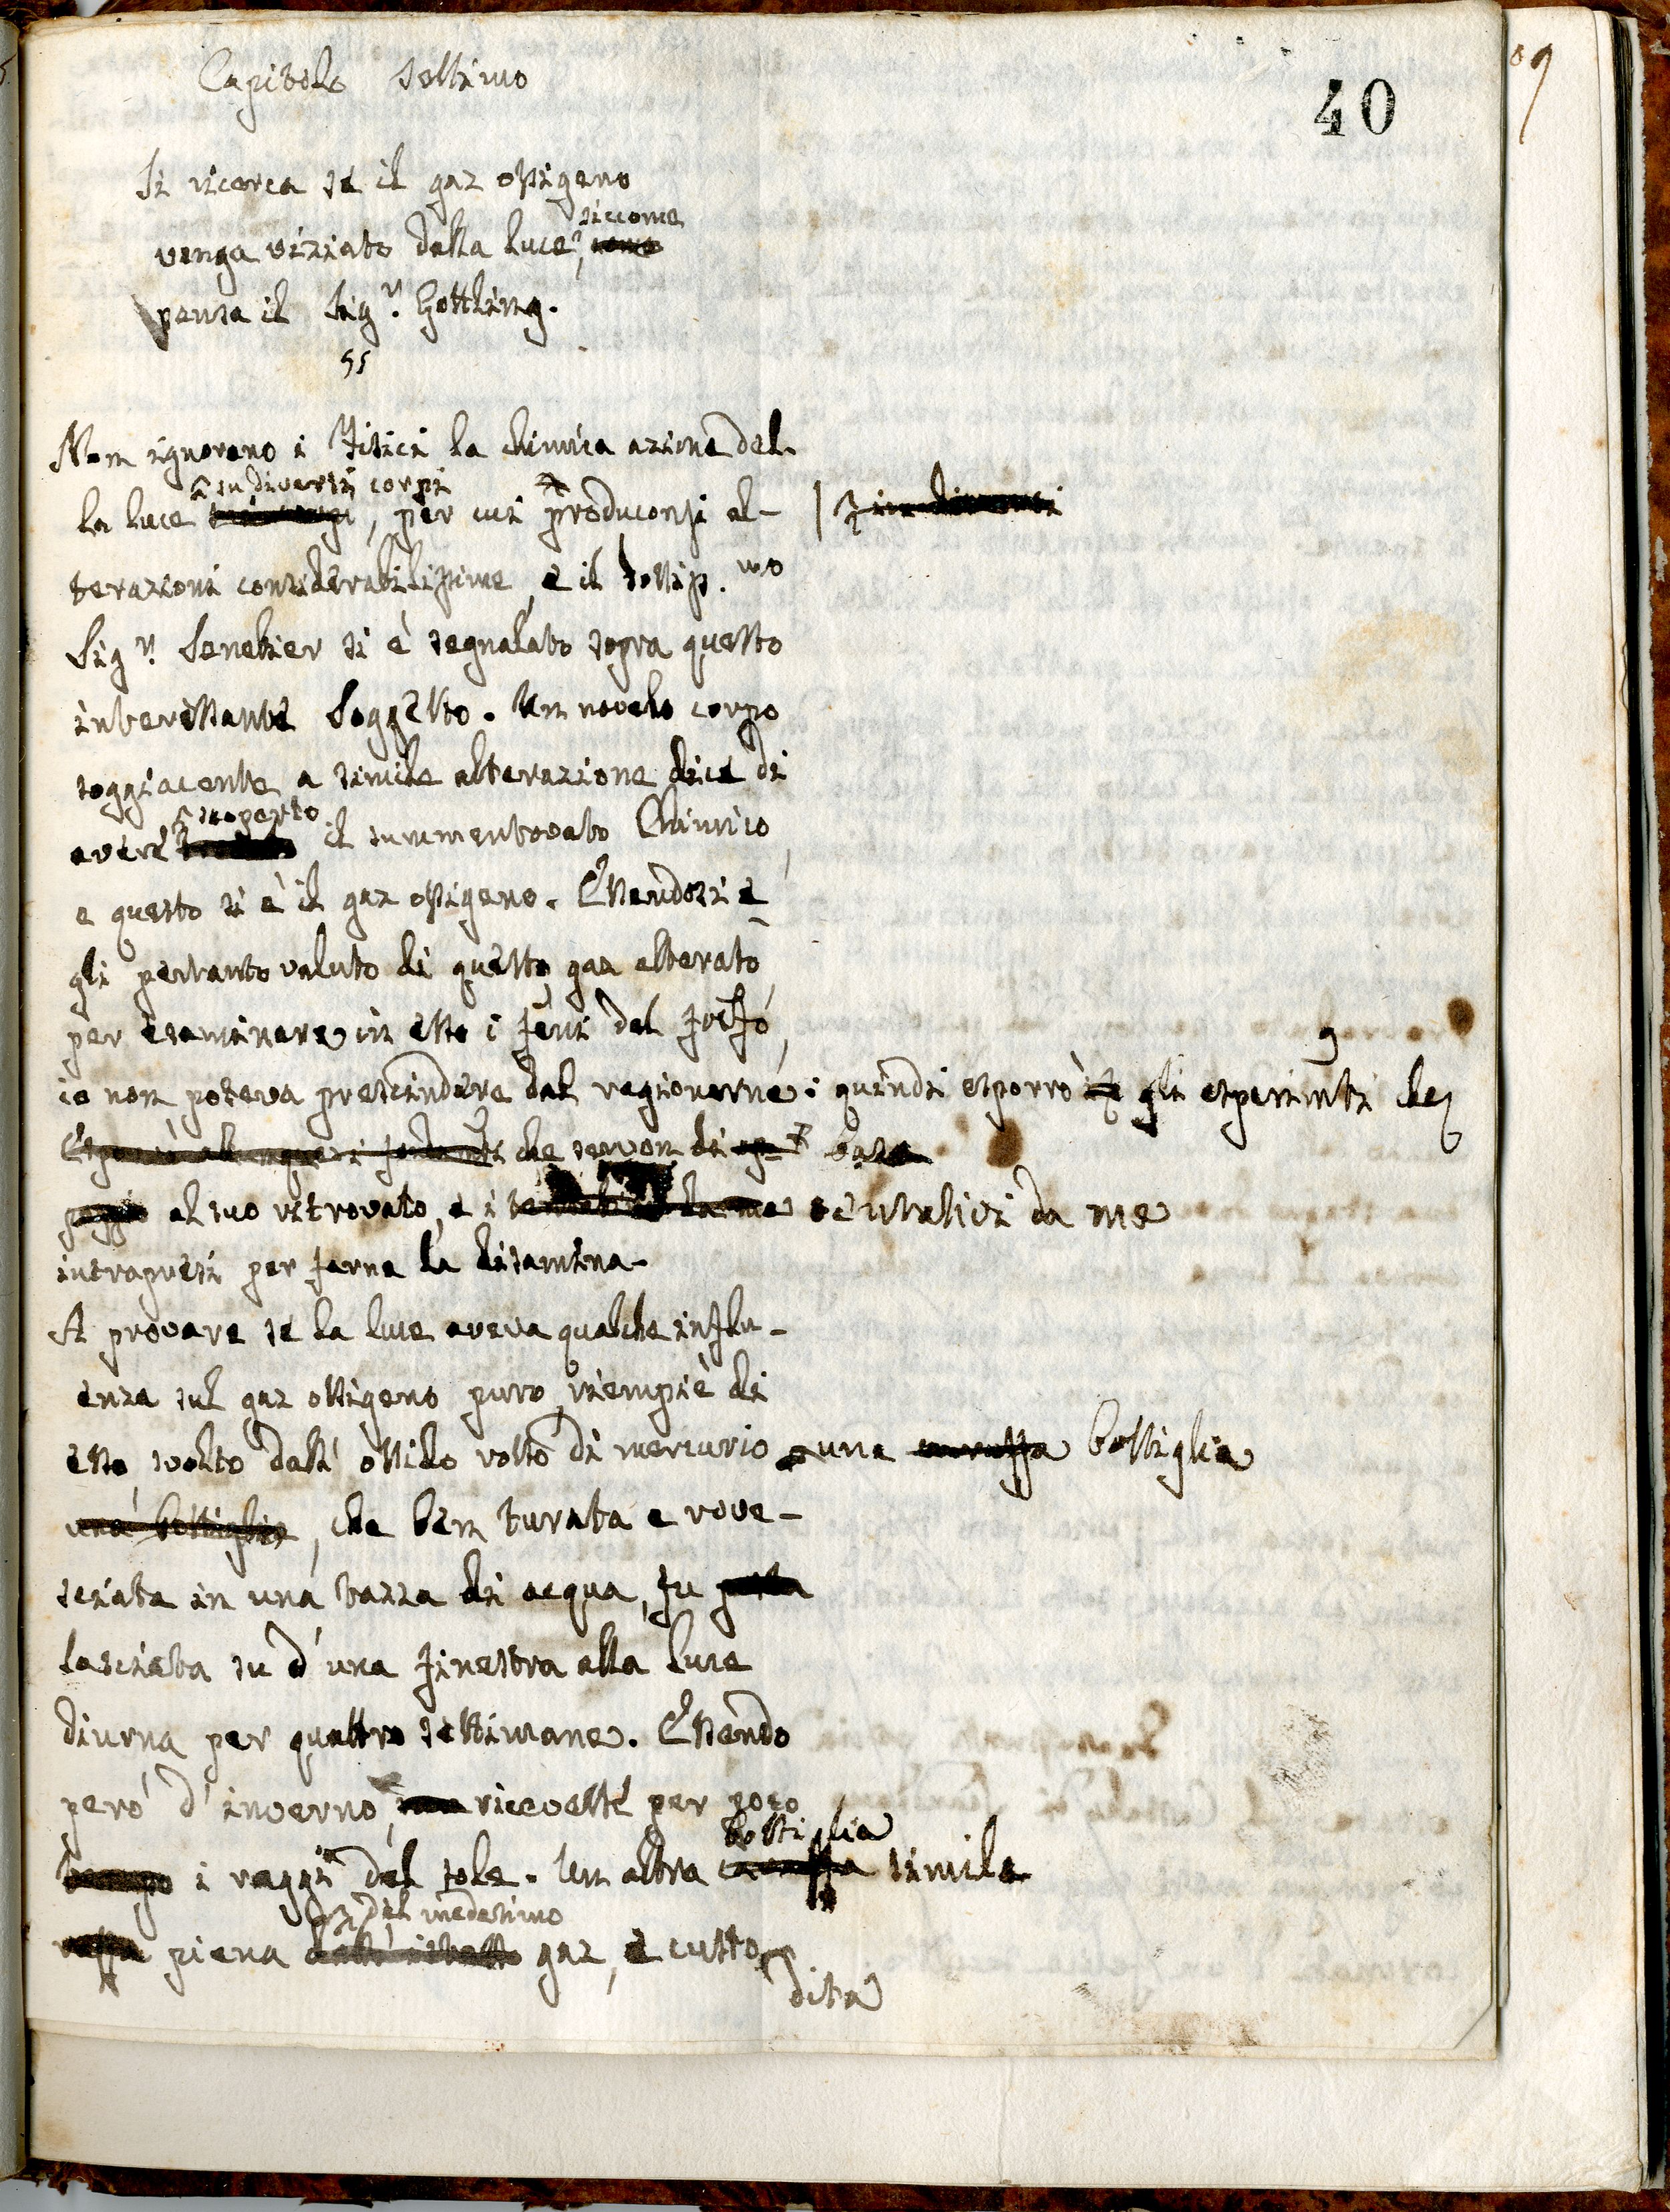 Capitolo settimo
40
Si ricerca se il gaz ossigeno
siccome
venga viziato dalla luce, come
pensa il Sig.r Gottling.
Non ignorano i Fisici la chimica azione del-
su diversi corpi
la luce, per cui produconsi al-
terazioni considerabilissime, e il dottiss.mo
Sig.r Senebier si è segnalato sopra questo
interessante soggetto. Un novelo corpo
soggiacente a simile alterazione dice di
scoperto
avere il summentovato Chimico,
e questo si è il gaz ossigeno. Essendosi e-
gli pertanto valuto di questo gaz alterato,
per esaminare in esso i feni del fosfo,
io non poteva prescindere dal ragionarne: quindi esporrò gli esperimti che
che servon di base
al suo ritrovato, e i da me
intrapresi per farne la disamina.
A provare se la luce aveva qualche influ-
enza sul gaz ossigeno puro, riempiè di
esso, svolto dall' ossido rosso di mercurio una caraffa bottiglia
una bottiglia, che ben turata e rove-
sciata in una tazza di acqua, fu posta
lasciata su d' una finestra alla luce
diurna per quattro settimane. Essendo
però d' inverno, ricevette per poco
bottiglia
tempo i raggi del sole. Un altra caraffa simile
del medesimo
piena dello istesso gaz, e custo
dita